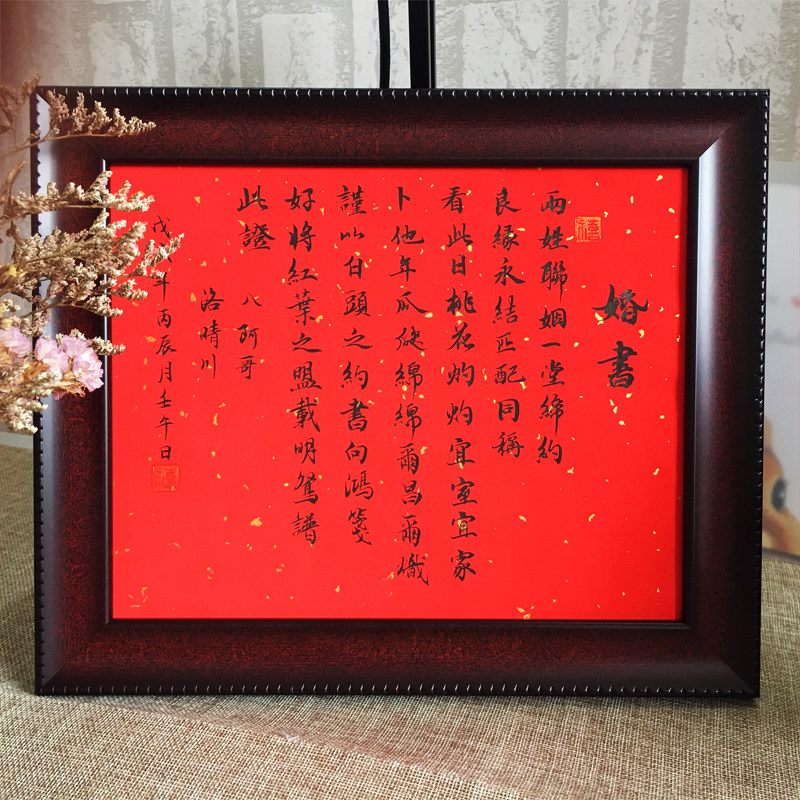 婚書
兩姓聯姻一堂締約
良緣永結匹配同稱
看此日桃花灼灼宜室宜家
卜他年瓜瓞綿綿爾昌爾熾
謹以白頭之約書向鴻箋
好將紅葉之盟載明鴛譜
此證
八阿哥
洛晴川
戊 年丙辰月壬午日